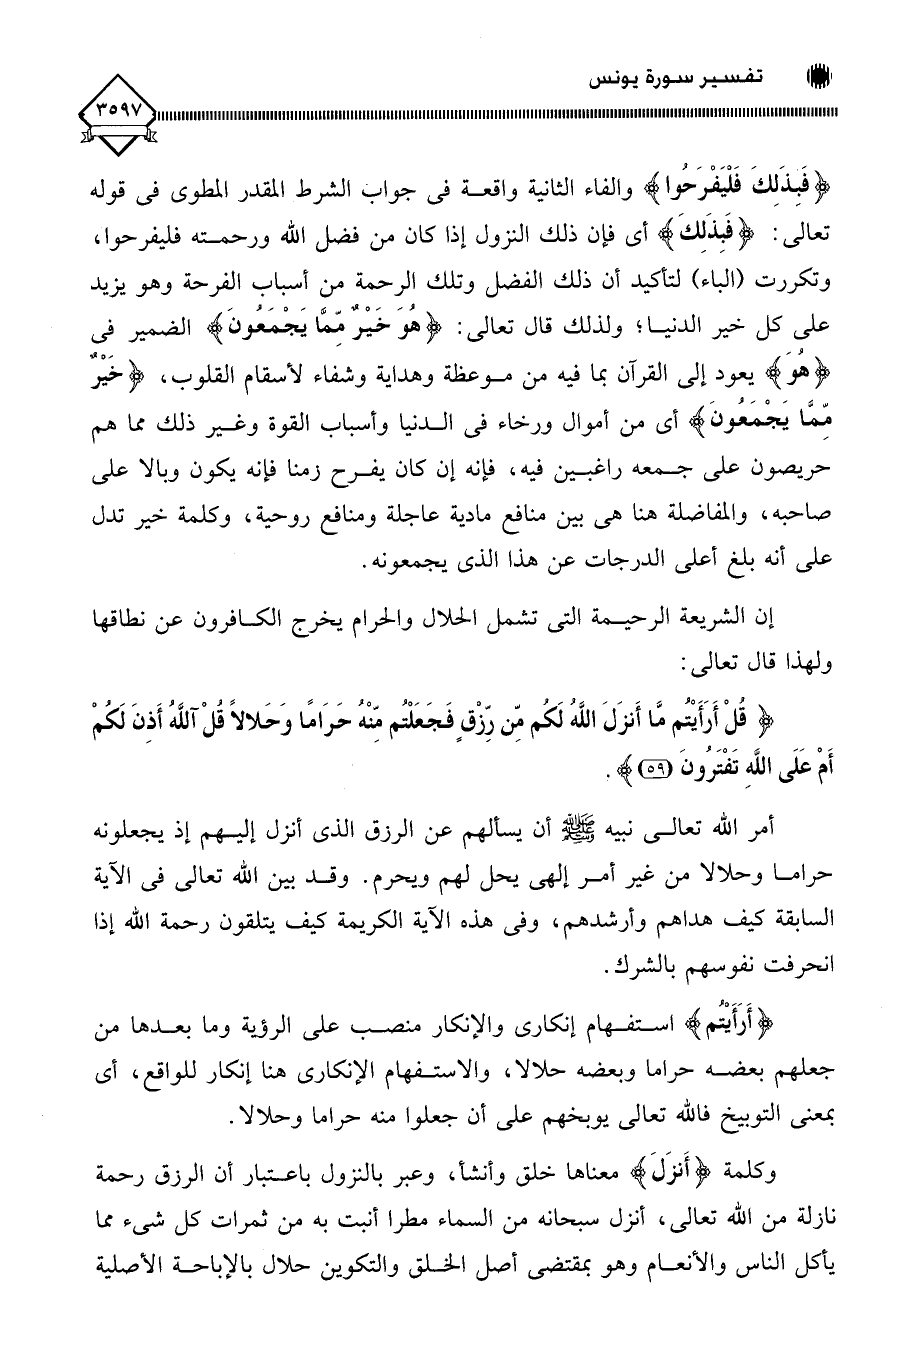 تفسير سورة يونس
٣٥٩٧
﴿فَبِذَلِكَ فَلْيَفْرَحُوا﴾ والفاء الثانية واقعة فى جواب الشرط المقدر المطوى فى قوله
تعالى: ﴿فَبِذَلِكَ﴾ أى فإن ذلك النزول إذا كان من فضل الله ورحمته فليفرحوا،
وتكررت (الباء) لتأكيد أن ذلك الفضل وتلك الرحمة من أسباب الفرحة وهو يزيد
على كل خير الدنيا؛ ولذلك قال تعالى: ﴿هُوَ خَيْرٌ مِّمَّا يَجْمَعُونَ﴾ الضمير فى
﴿هُوَ﴾ يعود إلى القرآن بما فيه من موعظة وهداية وشفاء لأسقام القلوب، ﴿خَيْرٌ
مِّمَّا يَجْمَعُونَ﴾ أى من أموال ورخاء فى الدنيا وأسباب القوة وغير ذلك مما هم
حريصون على جمعه راغبين فيه، فإنه إن كان يفرح زمنا فإنه يكون وبالا على
صاحبه، والمفاضلة هنا هى بين منافع مادية عاجلة ومنافع روحية، وكلمة خير تدل
على أنه بلغ أعلى الدرجات عن هذا الذى يجمعونه.
إن الشريعة الرحيمة التى تشمل الحلال والحرام يخرج الكافرون عن نطاقها
ولهذا قال تعالى:
﴿قُلْ أَرَأَيْتُم مَّا أَنزَلَ اللَّهُ لَكُم مِّن رِّزْقٍ فَجَعَلْتُم مِّنْهُ حَرَامًا وَحَلالاً قُلْ آللَّهُ أَذِنَ لَكُمْ
أَمْ عَلَى اللَّهِ تَفْتَرُونَ (٥٩)﴾.
أمر الله تعالى نبيه ﷺ أن يسألهم عن الرزق الذى أنزل إليهم إذ يجعلونه
حراما وحلالا من غير أمر إلهى يحل لهم ويحرم. وقد بين الله تعالى فى الآية
السابقة كيف هداهم وأرشدهم، وفى هذه الآية الكريمة كيف يتلقون رحمة الله إذا
انحرفت نفوسهم بالشرك.
﴿أَرَأَيْتُم﴾ استفهام إنكارى والإنكار منصب على الرؤية وما بعدها من
جعلهم بعضه حراما وبعضه حلالا، والاستفهام الإنكارى هنا إنكار للواقع، أى
بمعنى التوبيخ فالله تعالى يوبخهم على أن جعلوا منه حراما وحلالا.
وكلمة ﴿أَنزَلَ﴾ معناها خلق وأنشأ، وعبر بالنزول باعتبار أن الرزق رحمة
نازلة من الله تعالى، أنزل سبحانه من السماء مطرا أنبت به من ثمرات كل شىء مما
يأكل الناس والأنعام وهو بمقتضى أصل الخلق والتكوين حلال بالإباحة الأصلية